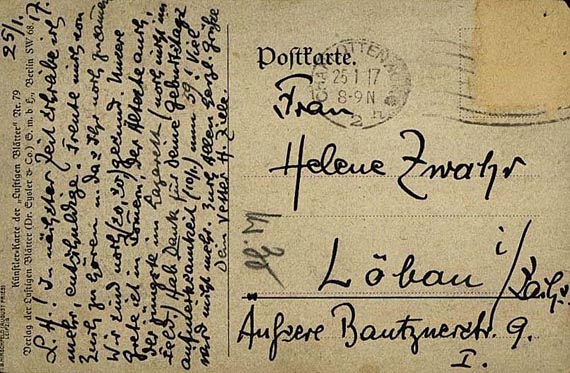 25/1. 17.
L. H.! In nächster Zeit schreibe ich
mehr, entschuldige. Freute mich von
Euch zu hören u. das Ihr noch gesund
Wir sind noch (so, so) gesund. Unsere
Grete ist in Pommern, der Älteste auch
der jüngste im Lazarett (noch nicht im
Feld) Hab Dank für Deine Geburtstags
aufmerksamkeit (10/1.) nun 59! Viel
wird nicht mehr. Euch Allen herzl. Grüße
Dein Vetter H. Zille.
Künstler-Karte der „Lustigen Blätter“ Nr. 79
Verlag der Lustigen Blätter (Dr. Eysler & Co.) G. m. b. H., Berlin SW 68.
Postkarte.
CHARLOTTENBURG
25 1 17
8-9 N
2 h
Frau
Helene Zwahr
Löbau i/Sachs.
Äußere Bautznerstr. 9.
I.